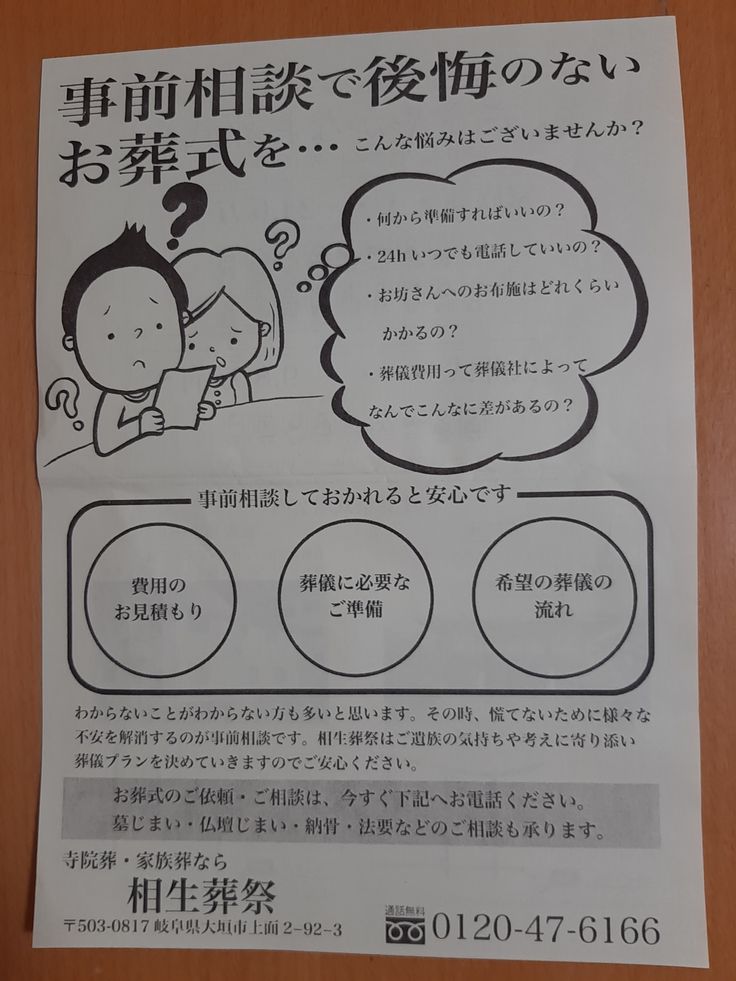 事前相談で後悔のない
お葬式を… こんな悩みはございませんか？
？
？
？
・何から準備すればいいの？
・24hいつでも電話していいの？
・お坊さんへのお布施はどれくらい
かかるの？
・葬儀費用って葬儀社によって
なんでこんなに差があるの？
事前相談しておかれると安心です
費用の
お見積もり
葬儀に必要な
ご準備
希望の葬儀の
流れ
わからないことがわからない方も多いと思います。その時、慌てないために様々な
不安を解消するのが事前相談です。相生葬祭はご遺族の気持ちや考えに寄り添い
葬儀プランを決めていきますのでご安心ください。
お葬式のご依頼・ご相談は、今すぐ下記へお電話ください。
墓じまい・仏壇じまい・納骨・法要などのご相談も承ります。
寺院葬・家族葬なら
相生葬祭
〒503-0817 岐阜県大垣市上面2-92-3
通話無料
0120-47-6166